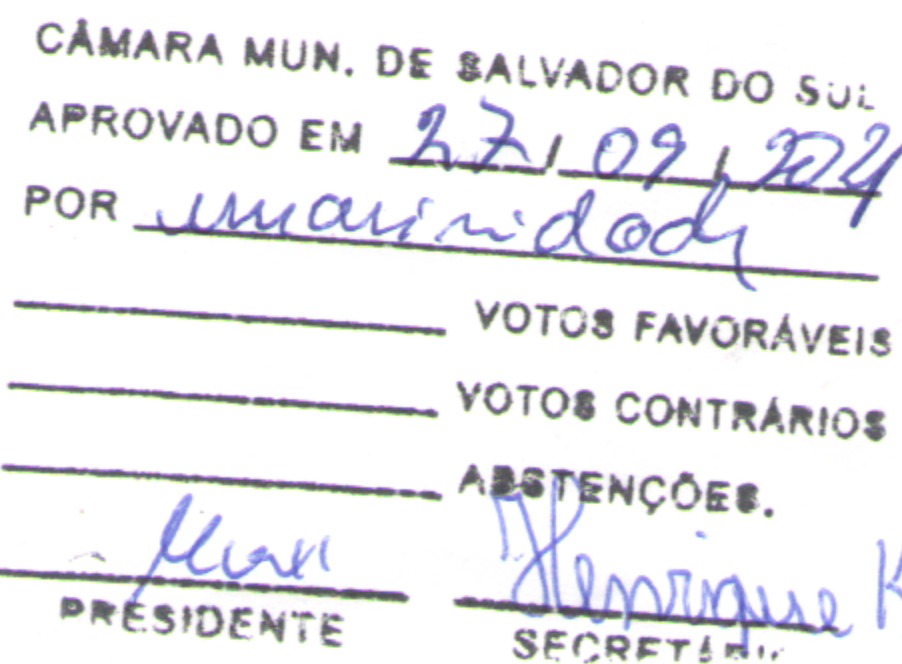 CÂMARA MUN. DE SALVADOR DO SUL
APROVADO EM 27/09/2021
POR unanimidade
VOTOS FAVORÁVEIS
VOTOS CONTRÁRIOS
ABSTENÇÕES.
Henrique K
PRESIDENTE SECRETÁRIO